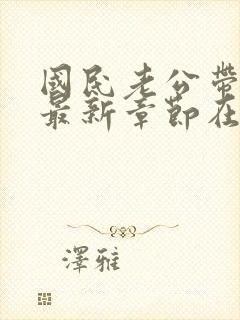 國民老公帶
最新章節在
澤雅